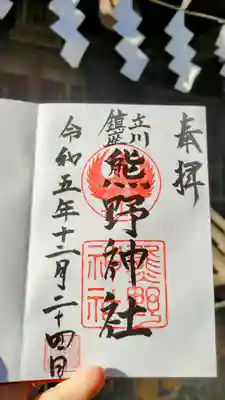 奉拝
立川
鎮座
熊野神社
熊野
神社
令和五年十二月二十四日